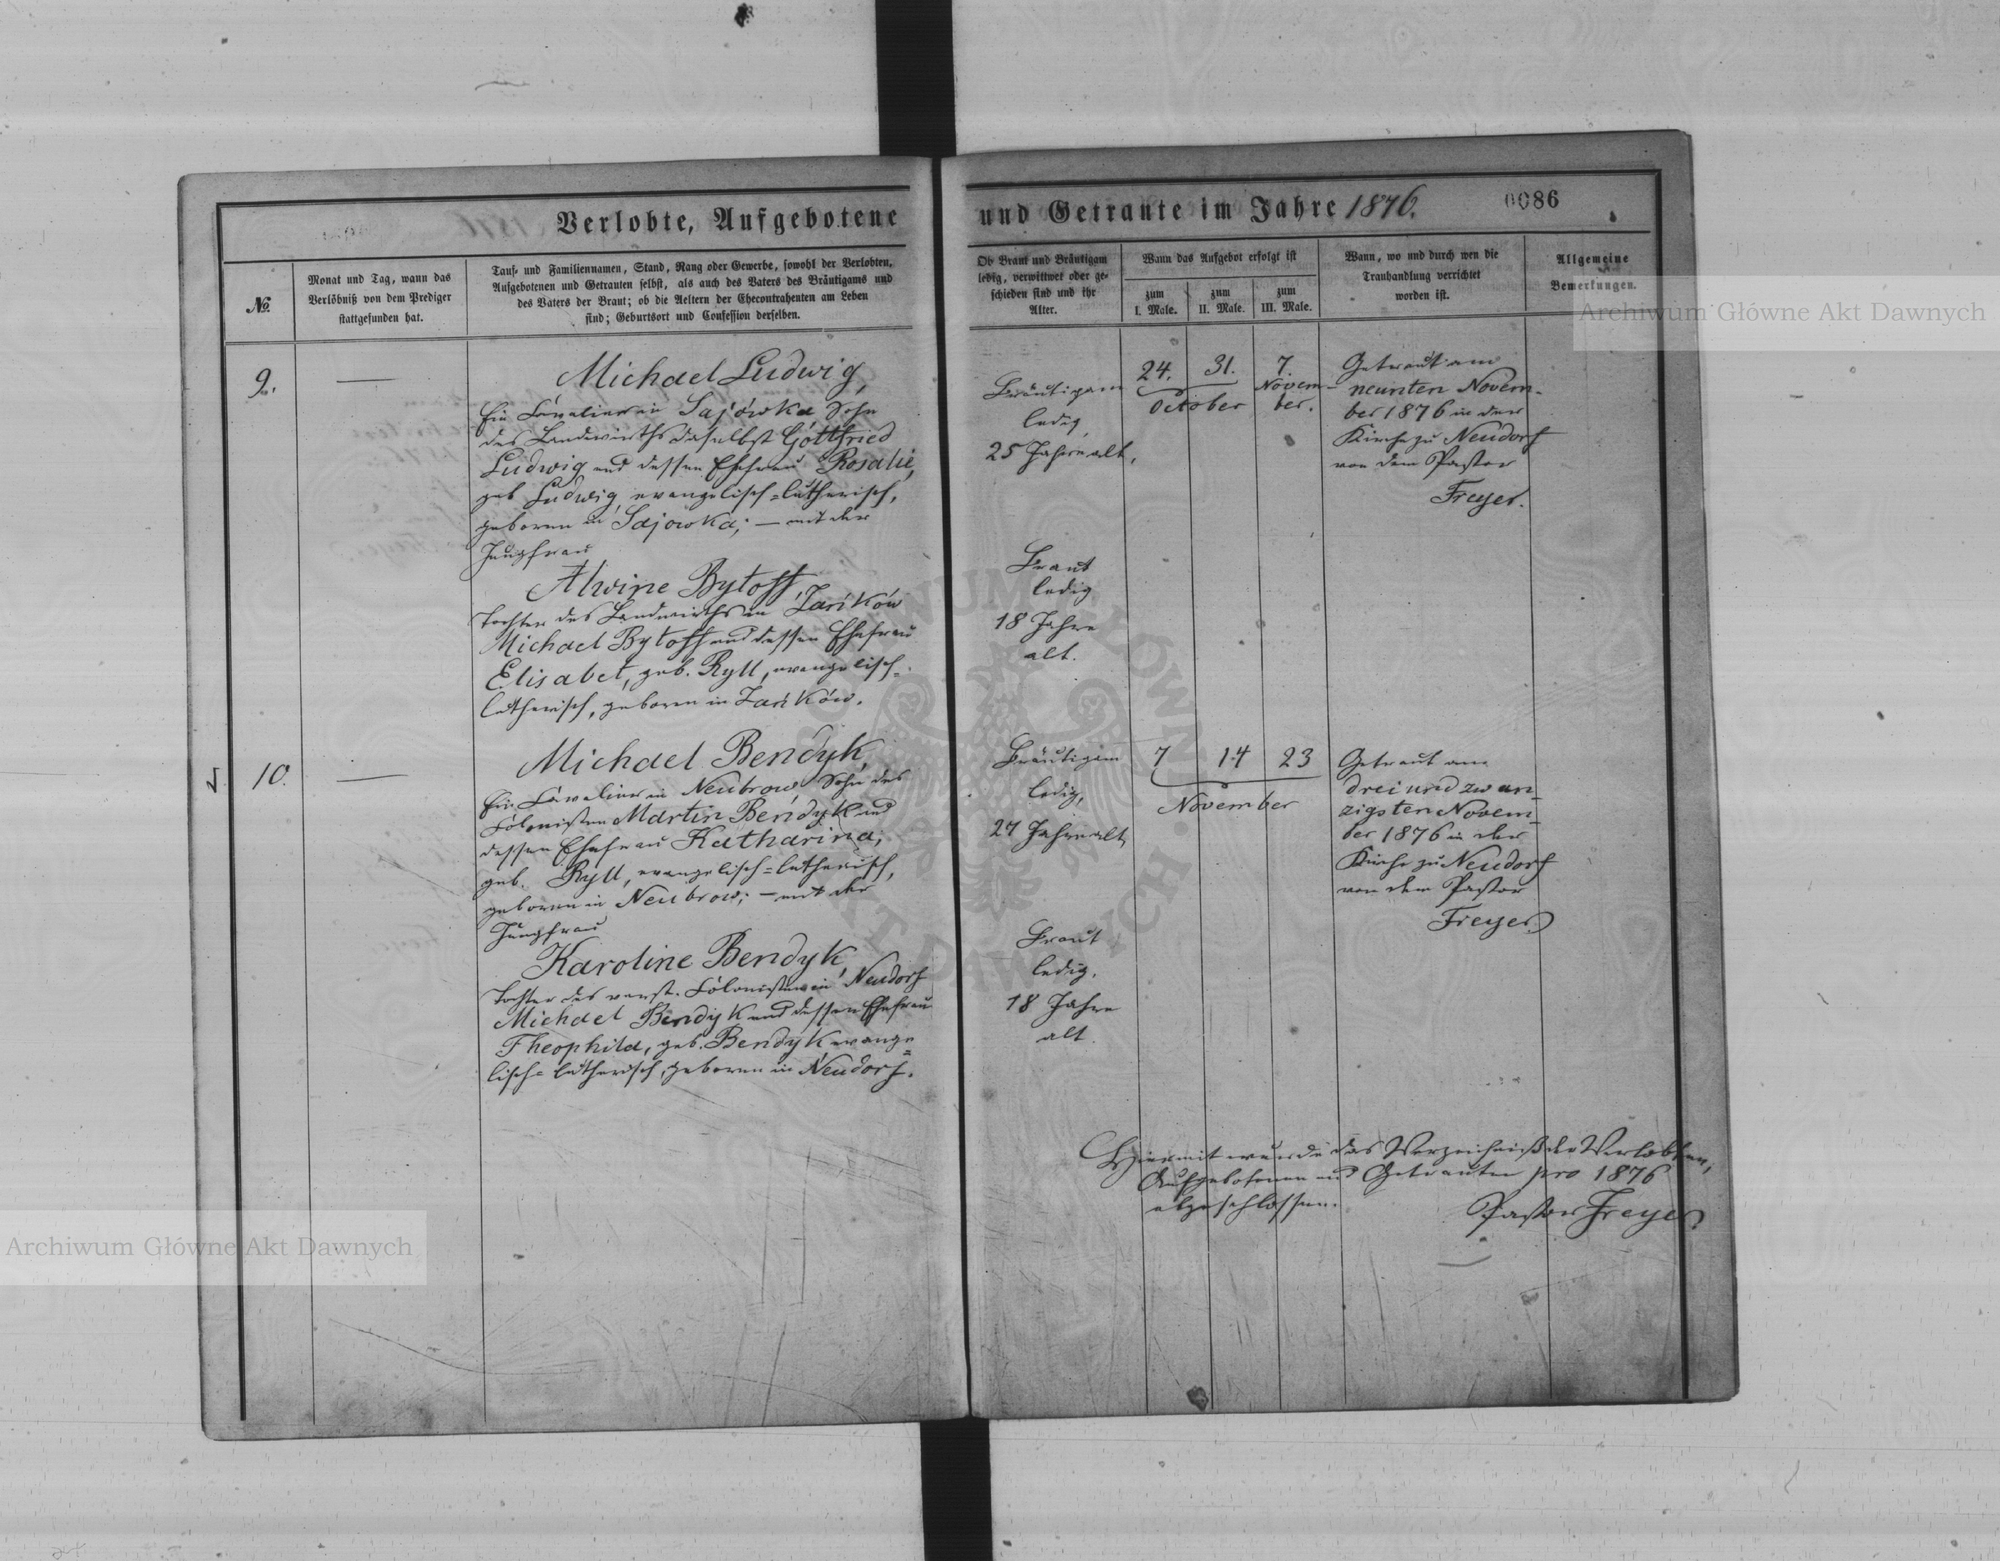 Verlobte, Aufgebotene
und Getraute im Jahre 1876.
0086
No.
Monat und Tag, wann das
Verlöbniß von dem Prediger
stattgefunden hat.
Tauf- und Familiennamen, Stand, Rang oder Gewerbe, sowohl der Verlobten,
Aufgebotenen und Getrauten selbst, als auch des Vaters des Bräutigams und
des Vaters der Braut; ob die Aeltern der Ehecontrahenten am Leben
sind; Geburtsort und Confession derselben.
Ob Braut und Bräutigam
ledig, verwittwet oder ge-
schieden sind und ihr
Alter.
Wann das Aufgebot erfolgt ist
zum
I. Male.
zum
II. Male.
zum
III. Male.
Wann, wo und durch wen die
Trauhandlung verrichtet
worden ist.
Allgemeine
Bemerkungen.
Archiwum Główne Akt Dawnych
9.
Michael Ludwig,
in Sajówka Sohn
des Landwirths daselbst Gottfried
Ludwig und dessen Ehefrau Rosalie,
geb Ludwig, evangelisch-lutherisch,
geboren in Sajowka; — mit der
Jungfrau
Alwine Bytoff,
Tochter des Landwirths in
Michael Bytoff und dessen Ehefrau
Elisabet, geb. Ryll, evangelisch-
lutherisch, geboren in
Bräutigam
ledig,
25 Jahre alt,
Braut
ledig
18 Jahre
alt.
24. 31. 7.
October Novem-
ber.
Getraut am
neunten Novem-
ber 1876 in der
Kirche zu Neudorf
von dem Pastor
Freyer.
10.
Michael Bendyk,
in Neubrow Sohn des
Colonisten Martin Bendyk und
dessen Ehefrau Katharina,
geb. Ryll, evangelisch-lutherisch,
geboren in Neubrow; — mit der
Jungfrau
Karoline Bendyk,
Tochter des verst. Colonisten in Neudorf
Michael Bendyk und dessen Ehefrau
Theophila, geb. Bendyk evange-
lisch-lutherisch, geboren in Neudorf.
Bräutigam
ledig,
27 Jahre alt,
Braut
ledig,
18 Jahre
alt.
7 14 23
November
Getraut am
drei und zwan-
zigsten Novem-
ber 1876 in der
Kirche zu Neudorf
von dem Pastor
Freyer
Hiermit wurde das Verzeichniß der Verlobten,
Aufgebotenen und Getrauten pro 1876
abgeschlossen.
Pastor Freyer
Archiwum Główne Akt Dawnych